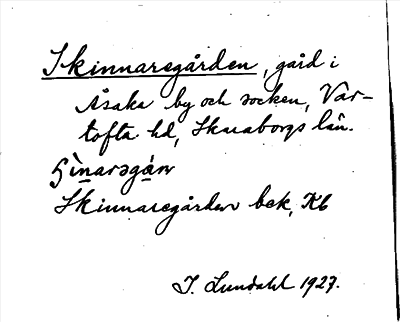 Skinnaregården, gård i
Åsaka by och socken, Var-
tofta hd, Skaraborgs län.
Skinnaregården bek, Kb
I. Lundahl 1927.